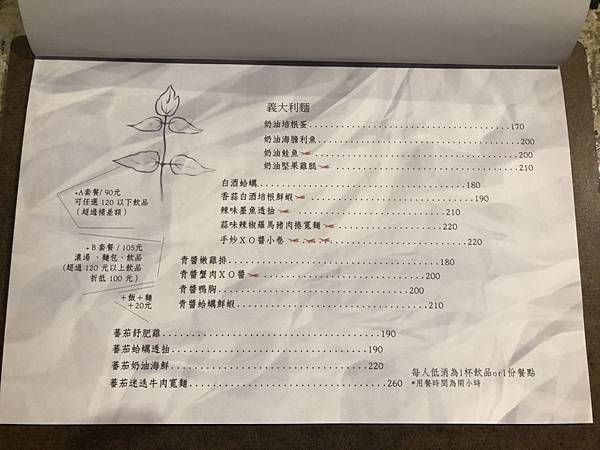 義大利麵
奶油培根蛋 170
奶油海膽利魚 200
奶油鮭魚 200
奶油堅果雞腿 210
白酒蛤蠣 180
香蒜白酒培根鮮蝦 190
辣味墨魚透抽 210
蒜味辣椒羅馬豬肉捲寬麵 220
手炒XO醬小卷 220
青醬嫩雞排 180
青醬蟹肉XO醬 200
青醬鴨胸 200
青醬蛤蠣鮮蝦 210
蕃茄舒肥雞 190
蕃茄蛤蠣透抽 190
蕃茄奶油海鮮 220
蕃茄迷迭牛肉寬麵 260
+A套餐/ 90元
可任選 120 以下飲品
(超過補差額)
+B 套餐 / 105元
濃湯、麵包、飲品
(超過 120 元以上飲品
折抵 100 元)
+飯+麵
+20元
每人低消為1杯飲品or1份餐點
*用餐時間為兩小時